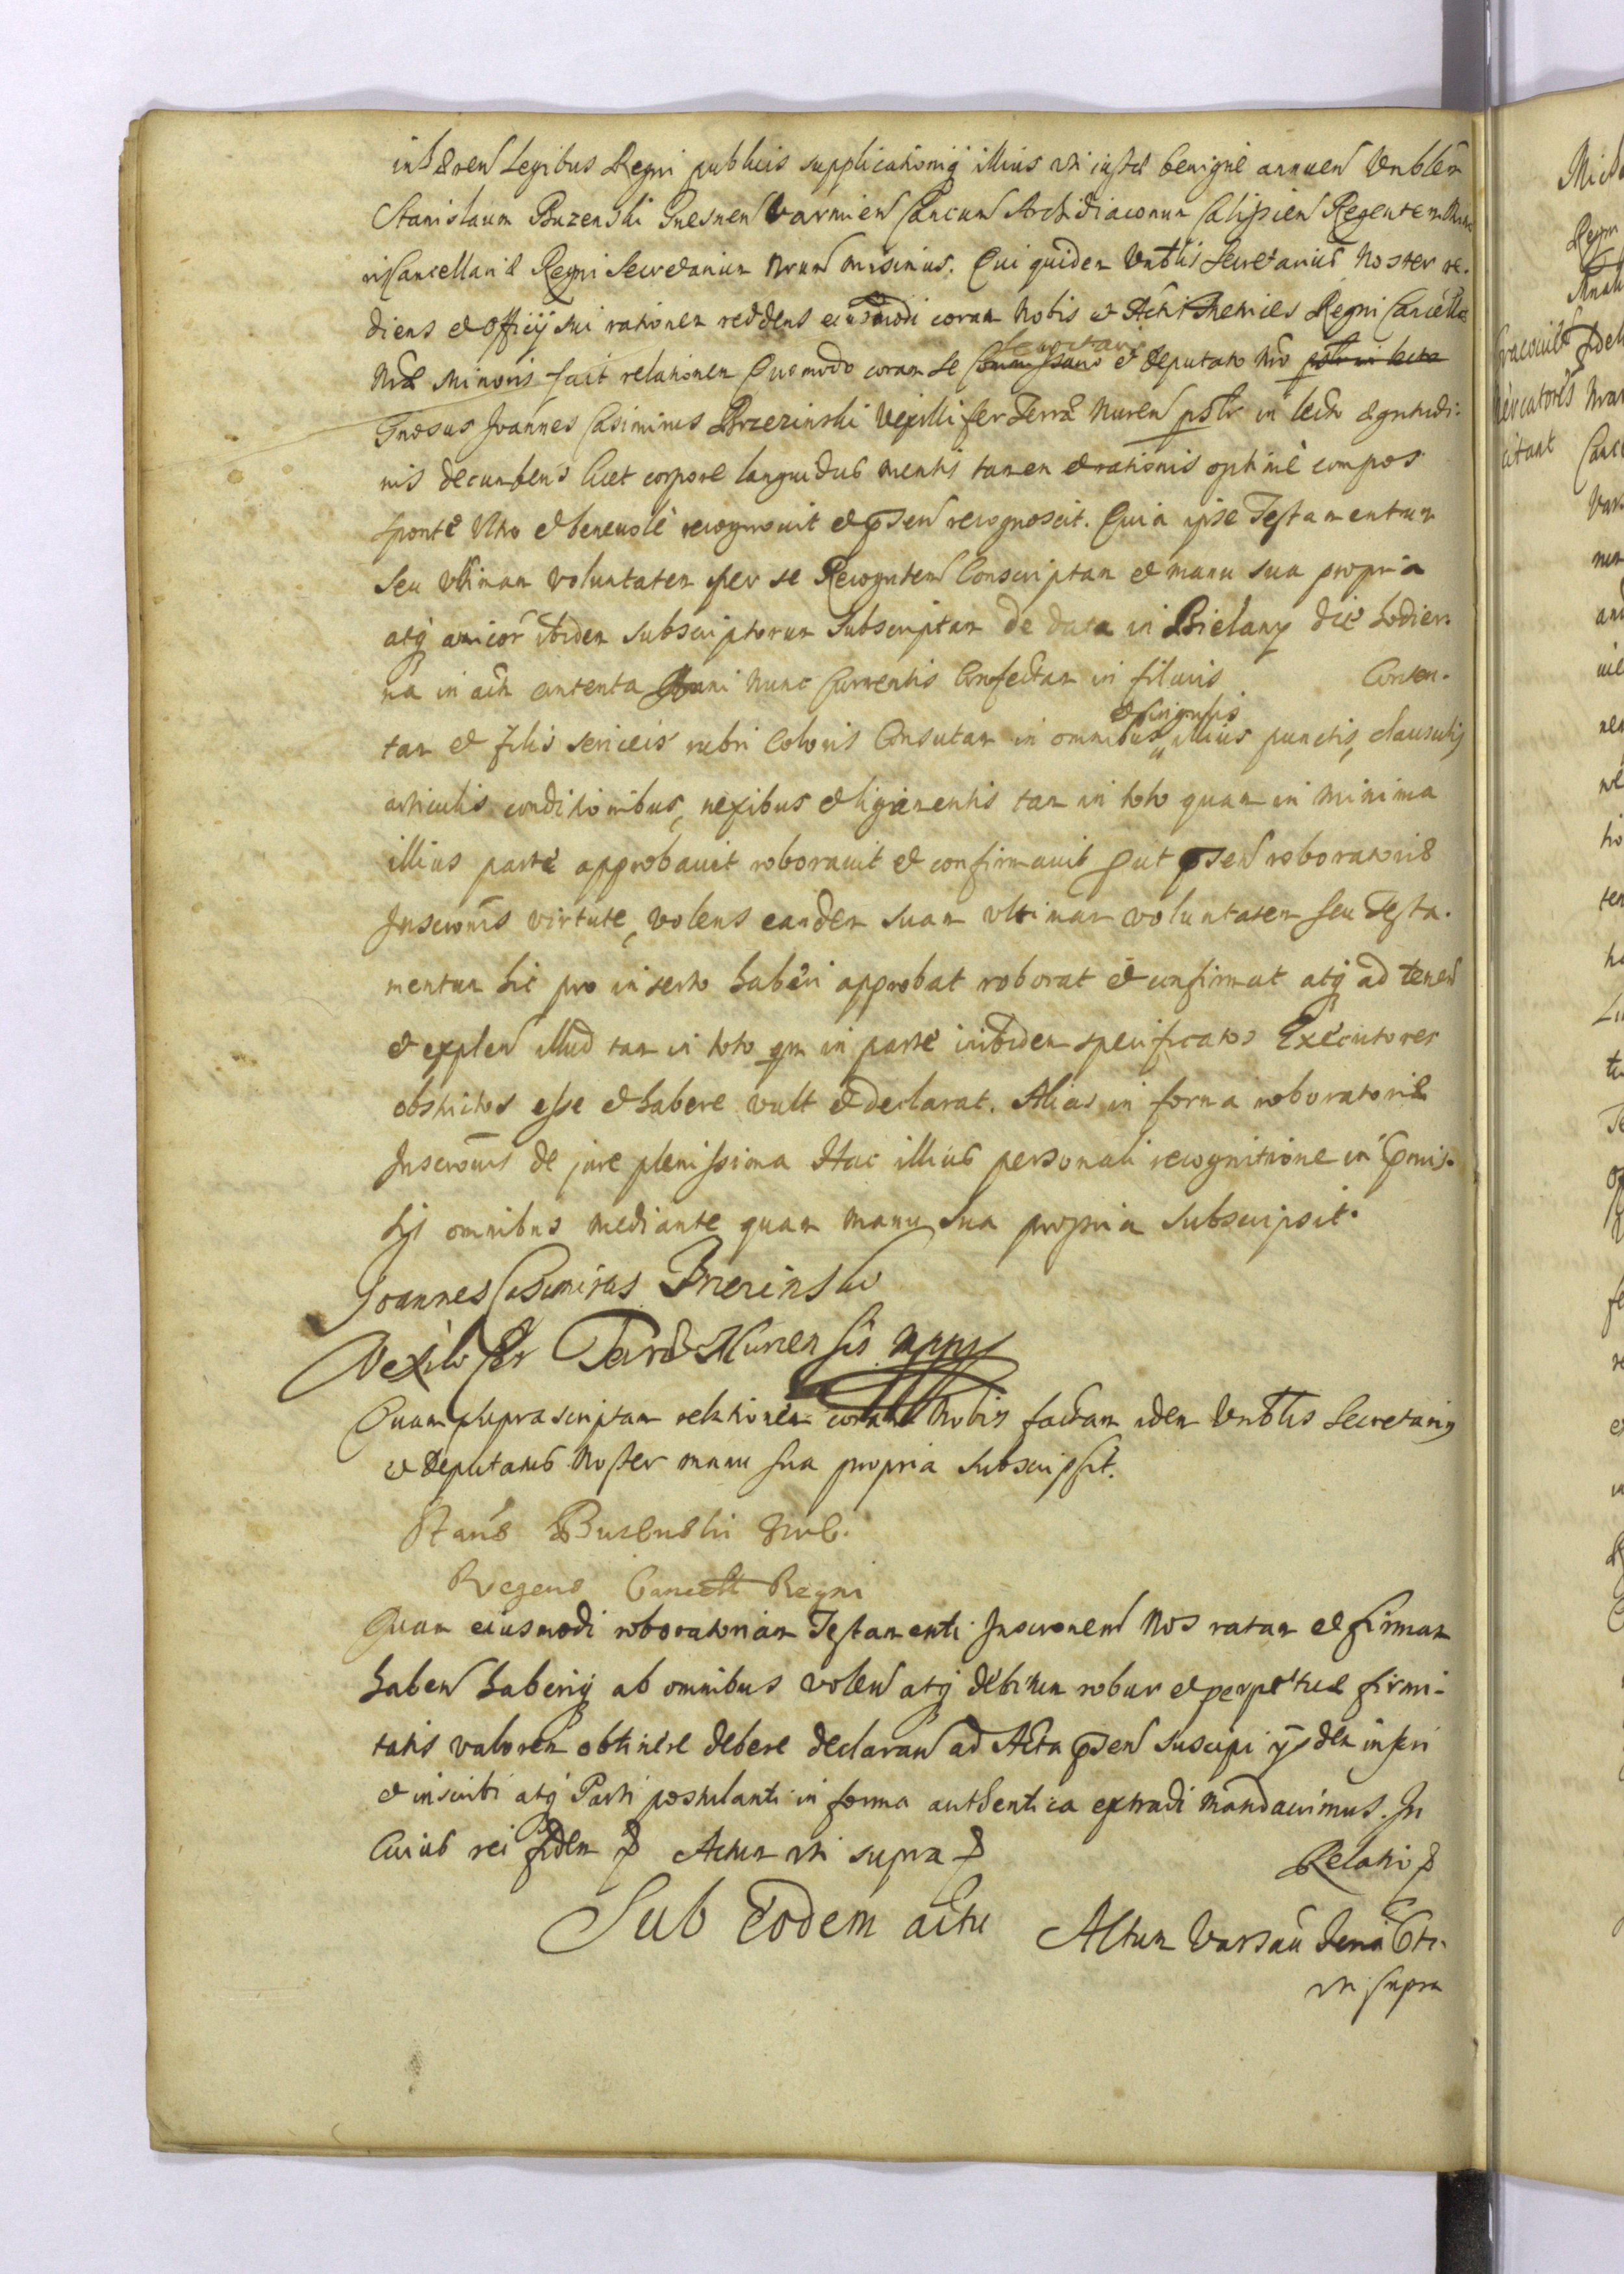 inhæren Legibus Regni publicis supplicationiq illius uti justæ benigne annuen Vnblem
Stanislaum Buzenski Gnesnen Varmien Cancum Archidiaconum Calissien Regentem
ris Cancellariæ Regni Secretarium Nrum misimus. Qui quidem Vnblis Secretarius Noster re-
diens et Officÿ sui rationem reddens eiusmodi coram Nobis et Actis Metrices Regni Cancellæ
Nræ Minoris fecit relationem Quomodo coram se Commissario Secretario et Deputato Nro pstr in lecto
Gnosus Joannes Casimirus Brzezinski Vexillifer Terræ Nuren pstr in lecto ægritudi-
nis decumbens licet corpore languidus mentis tamen et rationis optimè compos
sponte Vltro et beneuolè recognouit et psen recognoscit. Quia ipse Testamentum
seu Vltimam voluntatem per se Recognten Conscriptam et manu sua propria
atq amicor ibidem subscriptorum Subscriptam de data in Bielany die hodier-
na in aeth contenta Anni Nunc Currentis Confectam in filuris Conten-
tam et filis sericeis rubri Coloris Consutam in omnibus et singulis illius punctis, clausulis
articulis conditionibus, nexibus et ligamentis tam in toto quam in minima
illius parte approbauit roborauit et confirmauit put psen roboratoriæ
Inscronis virtute, volens eandem suam vltimam voluntatem seu Testa-
mentum hic pro inserto haberi approbat roborat et confirmat atq ad tenen
et explen illud tam in toto qm in parte inibidem specificatos Executores
obstrictos esse et habere vult et declarat. Alias in forma roboratoriæ
Inscronis de jure plenissima Hac illius personali recognitione in pmis-
sis omnibus mediante quam manu sua propria subscripsit.
Joannes Casimirus Brzezinski
Vexilifer Terræ Nurensis mppa
Quam supra scriptam relationem coram Nobis factam idem Vnblis Secretariq
et Deputatus Noster manu sua propria subscripsit.
Stanis Buzenski
Regens Cancell Regni
Quam eiusmodi roboratoriam Testamenti Inscronem Nos ratam et firmam
haben haberiq ab omnibus volen atq debitum robur et perpetuæ firmi-
tatis valorem obtinere debere declaran ad Acta psen suscipi ÿsdem inseri
et inscribi atq Parti postulanti in forma authentica extradi mandauimus. In
Cuius rei fidem Actum uti supra
Relatio
Sub Eodem actu Actum Varsau feria 6ta
uti supra